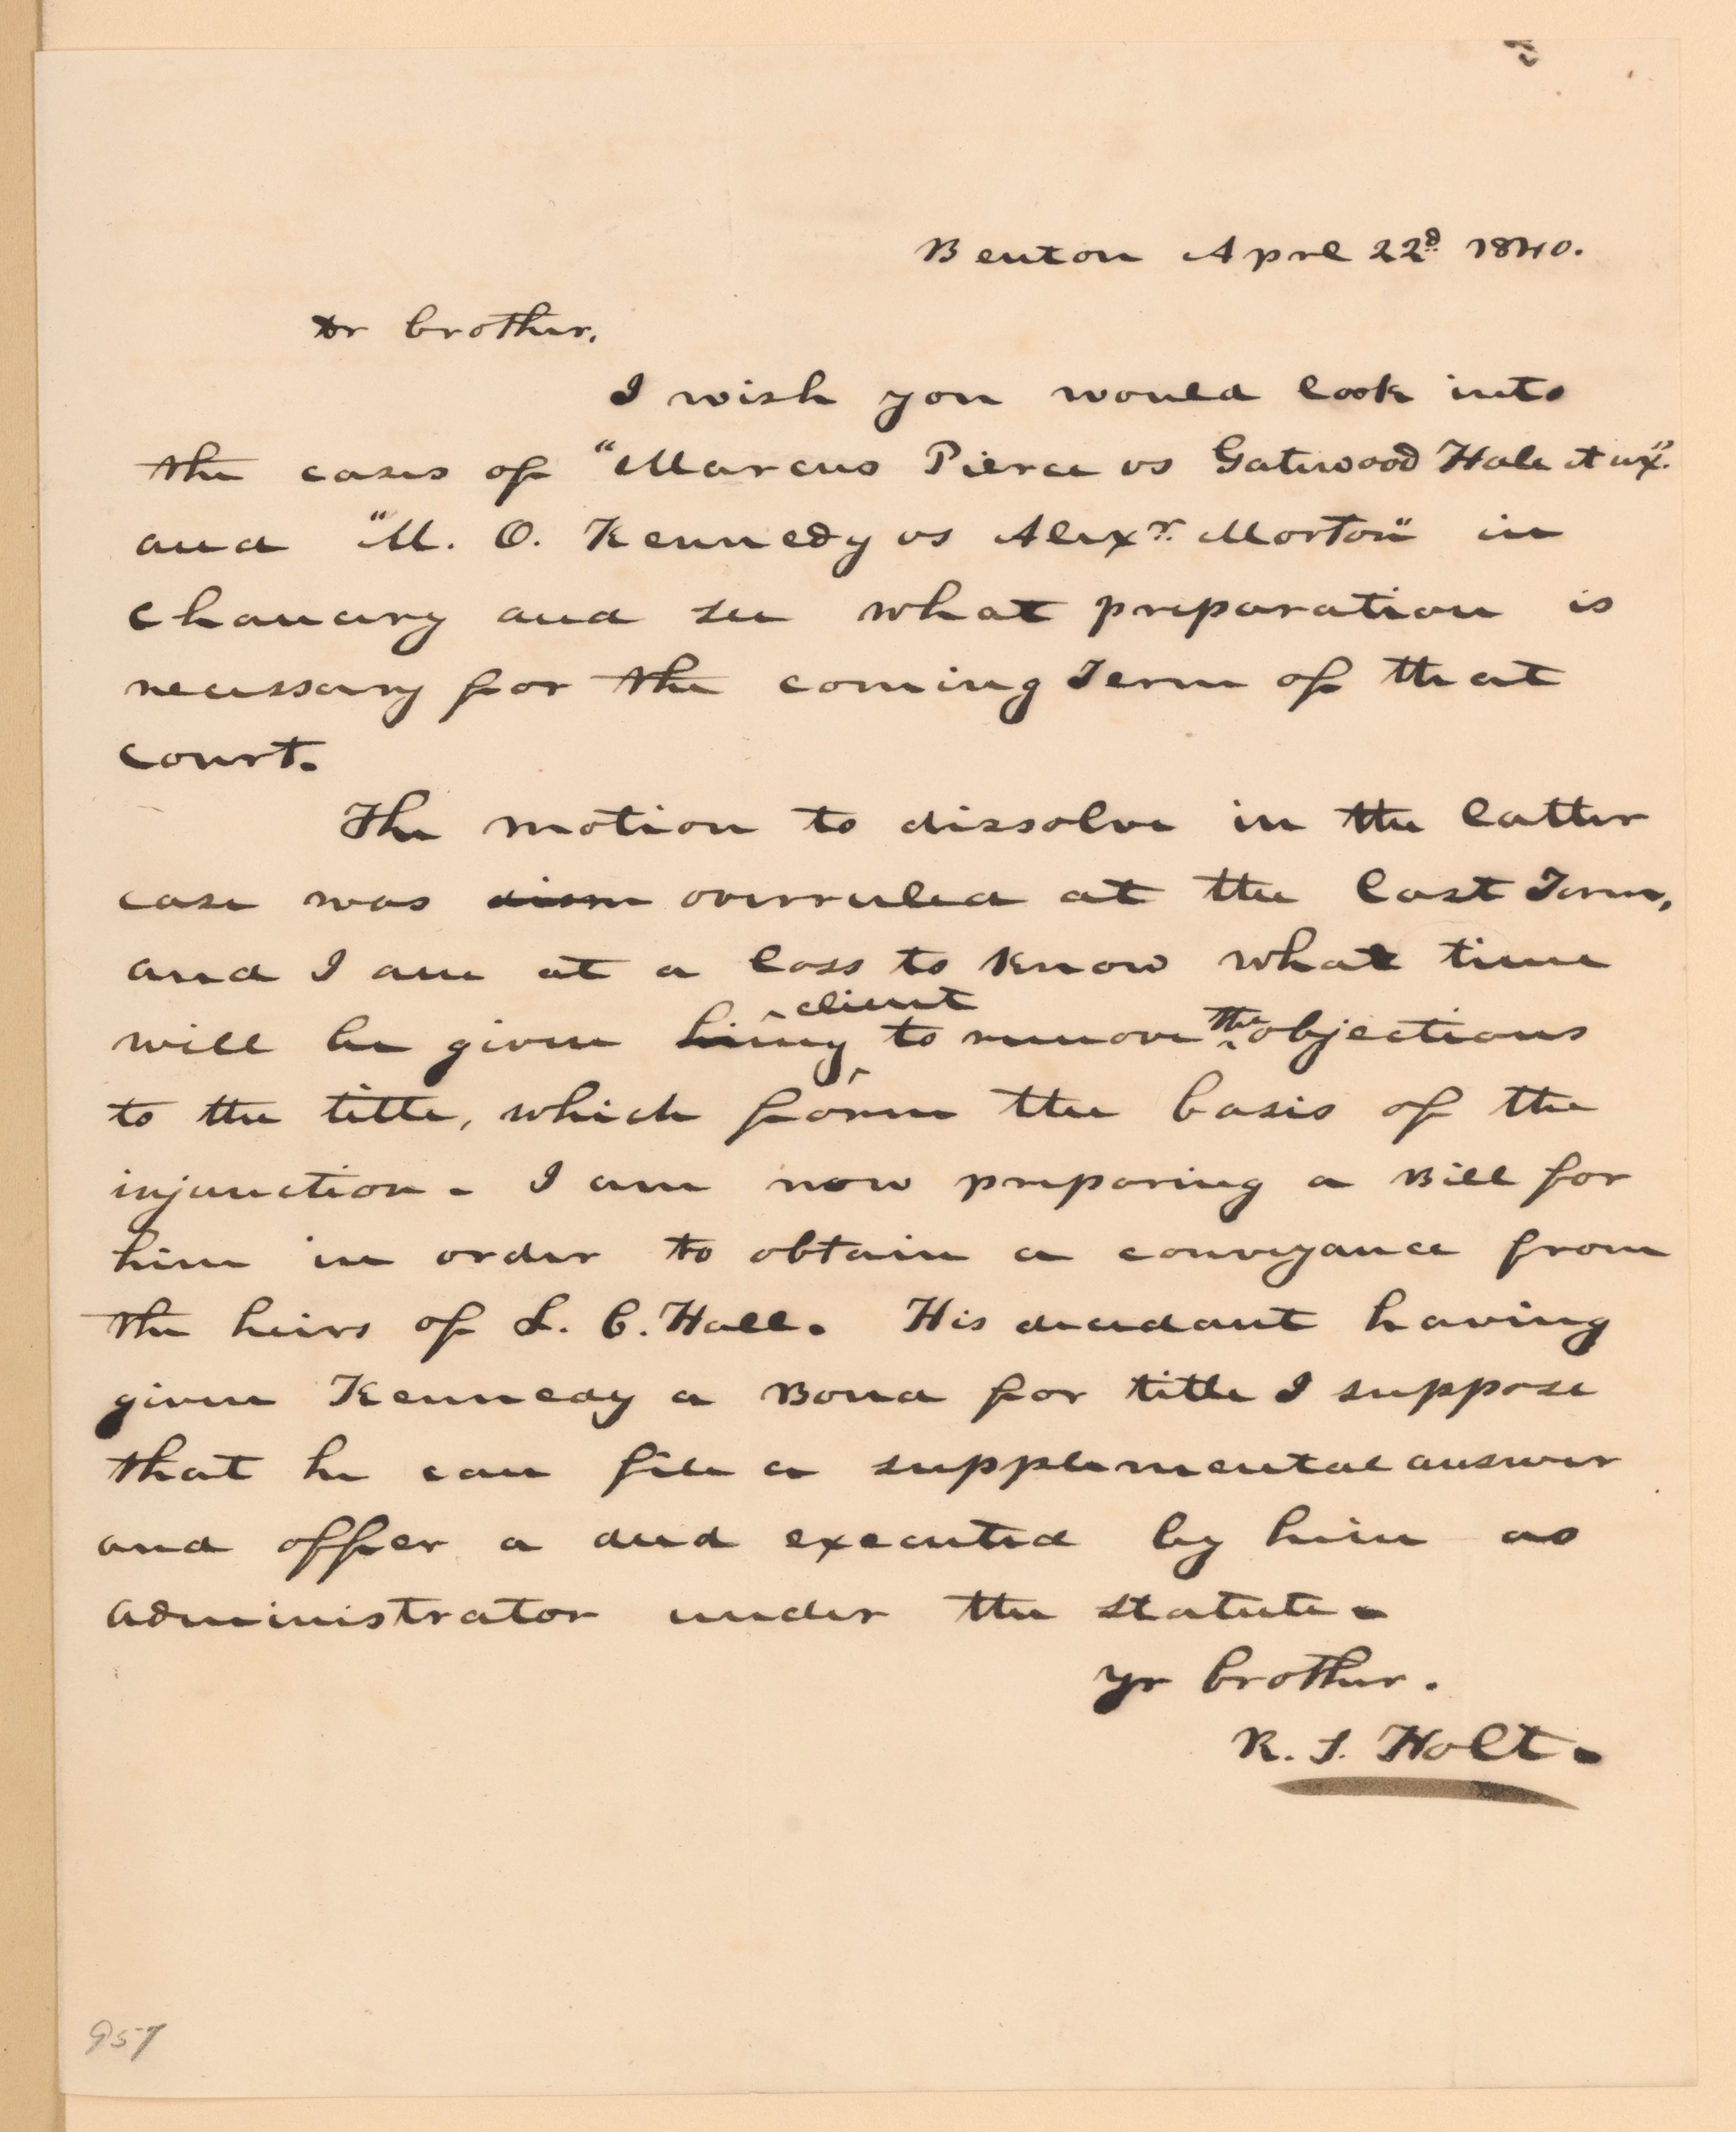 Benton Aprl 22d 1840.
Dr brother,
I wish you would look into
the cases of "Marcus Pierce vs Gatewood Hale et ux."
and "M. O. Kennedy vs Alexr. Morton" in
chancery and see what preparation is
necessary for the coming Term of that
court.
The motion to dissolve in the latter
case was dism overruled at the last Term,
and I am at a loss to know what time
client
will be given him my to remove the objections
to the title, which form the basis of the
injunction. I am now preparing a Bill for
him in order to obtain a conveyance from
the heirs of L. C. Hall. His decedant having
given Kennedy a Bond for title I suppose
that he can file a supplemental answer
and offer a deed executed by him as
administrator under the statute.
yr brother.
R. S. Holt.
957